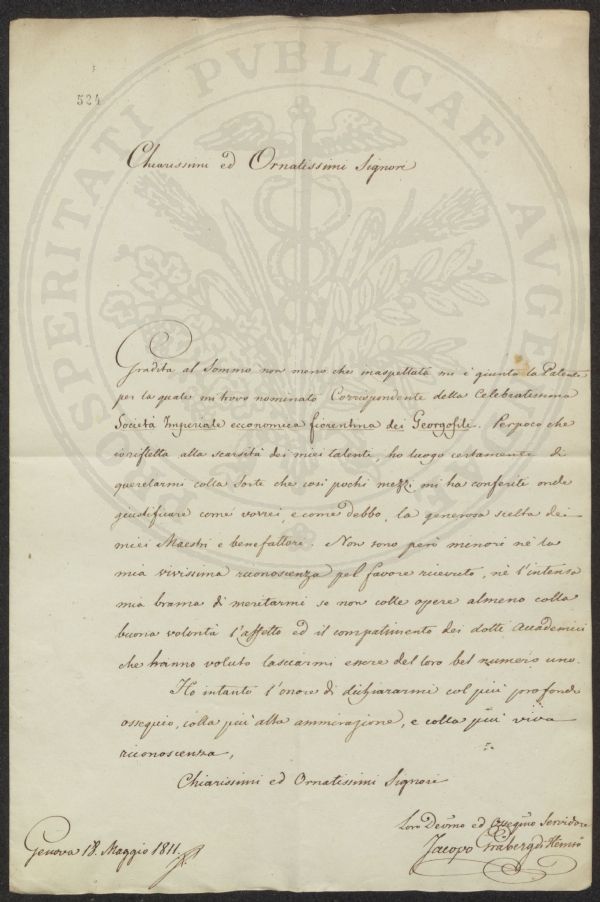 524
Chiarissimi ed Ornatissimi Signori
Gradita al Sommo non meno che inaspettata mi è giunta la Patente
per la quale mi trovo nominato Corrispondente della Celebratissima
Società Imperiale economica fiorentina dei Georgofili. Perpoco che
io rifletta alla scarsità dei miei talenti, ho luogo certamente di
querelarmi colla Sorte che così pochi mezzi mi ha conferiti onde
giustificare come vorrei, e come debbo, la generosa scelta dei
miei Maestri e benefattori. Non sono però minori nè la
mia vivissima riconoscenza pel favore ricevuto, nè l'intensa
mia brama di meritarmi se non colle opere almeno colla
buona volontà l'affetto ed il compatimento dei dotti Accademici
che hanno voluto lasciarmi essere del loro bel numero uno.
Ho intanto l'onore di dichiararmi col più profondo
ossequio, colla più alta ammirazione, e colla più viva
riconoscenza,
Chiarissimi ed Ornatissimi Signori
Loro Devmo ed Osseqmo Servidore
Genova 18. Maggio 1811.
Jacopo Gråberg di Hemsö
PROSPERITATI PVBLICAE AVGENDAE